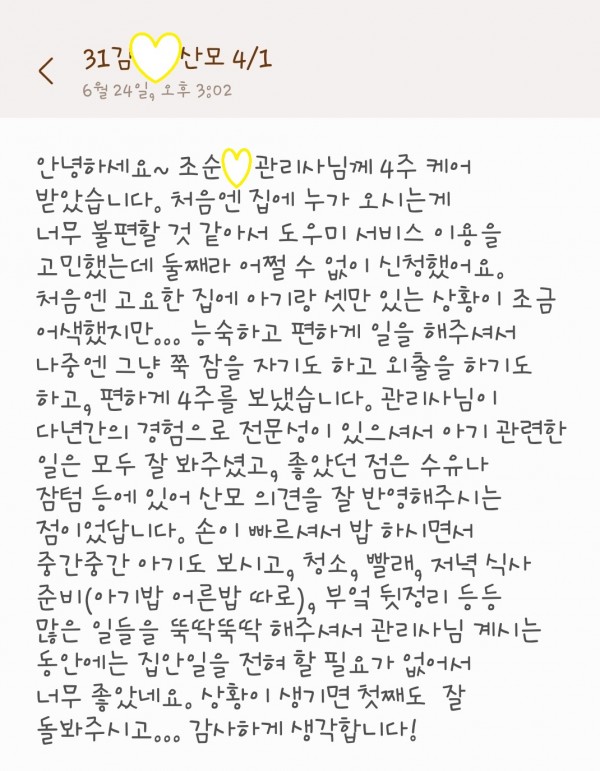 31김 산모 4/1
6월 24일, 오후 3:02
안녕하세요~ 조순 관리사님께 4주 케어
받았습니다. 처음엔 집에 누가 오시는게
너무 불편할 것 같아서 도우미 서비스 이용을
고민했는데 둘째라 어쩔 수 없이 신청했어요.
처음엔 고요한 집에 아기랑 셋만 있는 상황이 조금
어색했지만... 능숙하고 편하게 일을 해주셔서
나중엔 그냥 쭉 잠을 자기도 하고 외출을 하기도
하고, 편하게 4주를 보냈습니다. 관리사님이
다년간의 경험으로 전문성이 있으셔서 아기 관련한
일은 모두 잘 봐주셨고, 좋았던 점은 수유나
잠텀 등에 있어 산모 의견을 잘 반영해주시는
점이었답니다. 손이 빠르셔서 밥 하시면서
중간중간 아기도 보시고, 청소, 빨래, 저녁 식사
준비(아기밥 어른밥 따로), 부엌 뒷정리 등등
많은 일들을 뚝딱뚝딱 해주셔서 관리사님 계시는
동안에는 집안일을 전혀 할 필요가 없어서
너무 좋았네요. 상황이 생기면 첫째도 잘
돌봐주시고... 감사하게 생각합니다!